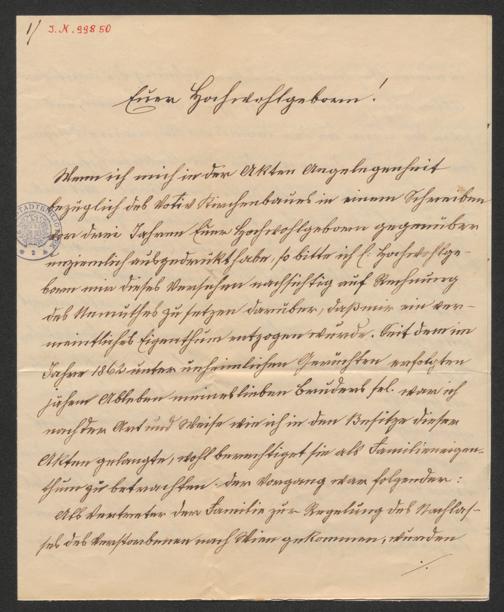 1/ J.N. 99850
Euer Hochwohlgeboren!
Wenn ich mich in der Akten Angelegenheit
bezüglich des Votiv Kirchenbaues in einem Schreiben
vor drei Jahren Euer Hochwohlgeboren gegenüber
unziemlich ausgedrückt habe, so bitte ich E. Hochwohlge-
boren mir dieses Versehen nachsichtig auf Rechnung
des Unmuthes zu setzen darüber, daß mir ein ver-
meintliches Eigenthum entzogen wurde. Seit dem im
Jahre 1862 unter unheimlichen Gerüchten erfolgten
jähem Ableben meines lieben Bruders sel. war ich
nach der Art und Weise wie ich in den Besitze dieser
Akten gelangte, wohl berechtiget sie als Familieneigen-
thum zu betrachten. der Vorgang war folgender:
Als Vertreter der Familie zur Regelung des Nachlas-
ses des Verstorbenen nach Wien gekommen, wurden
./.